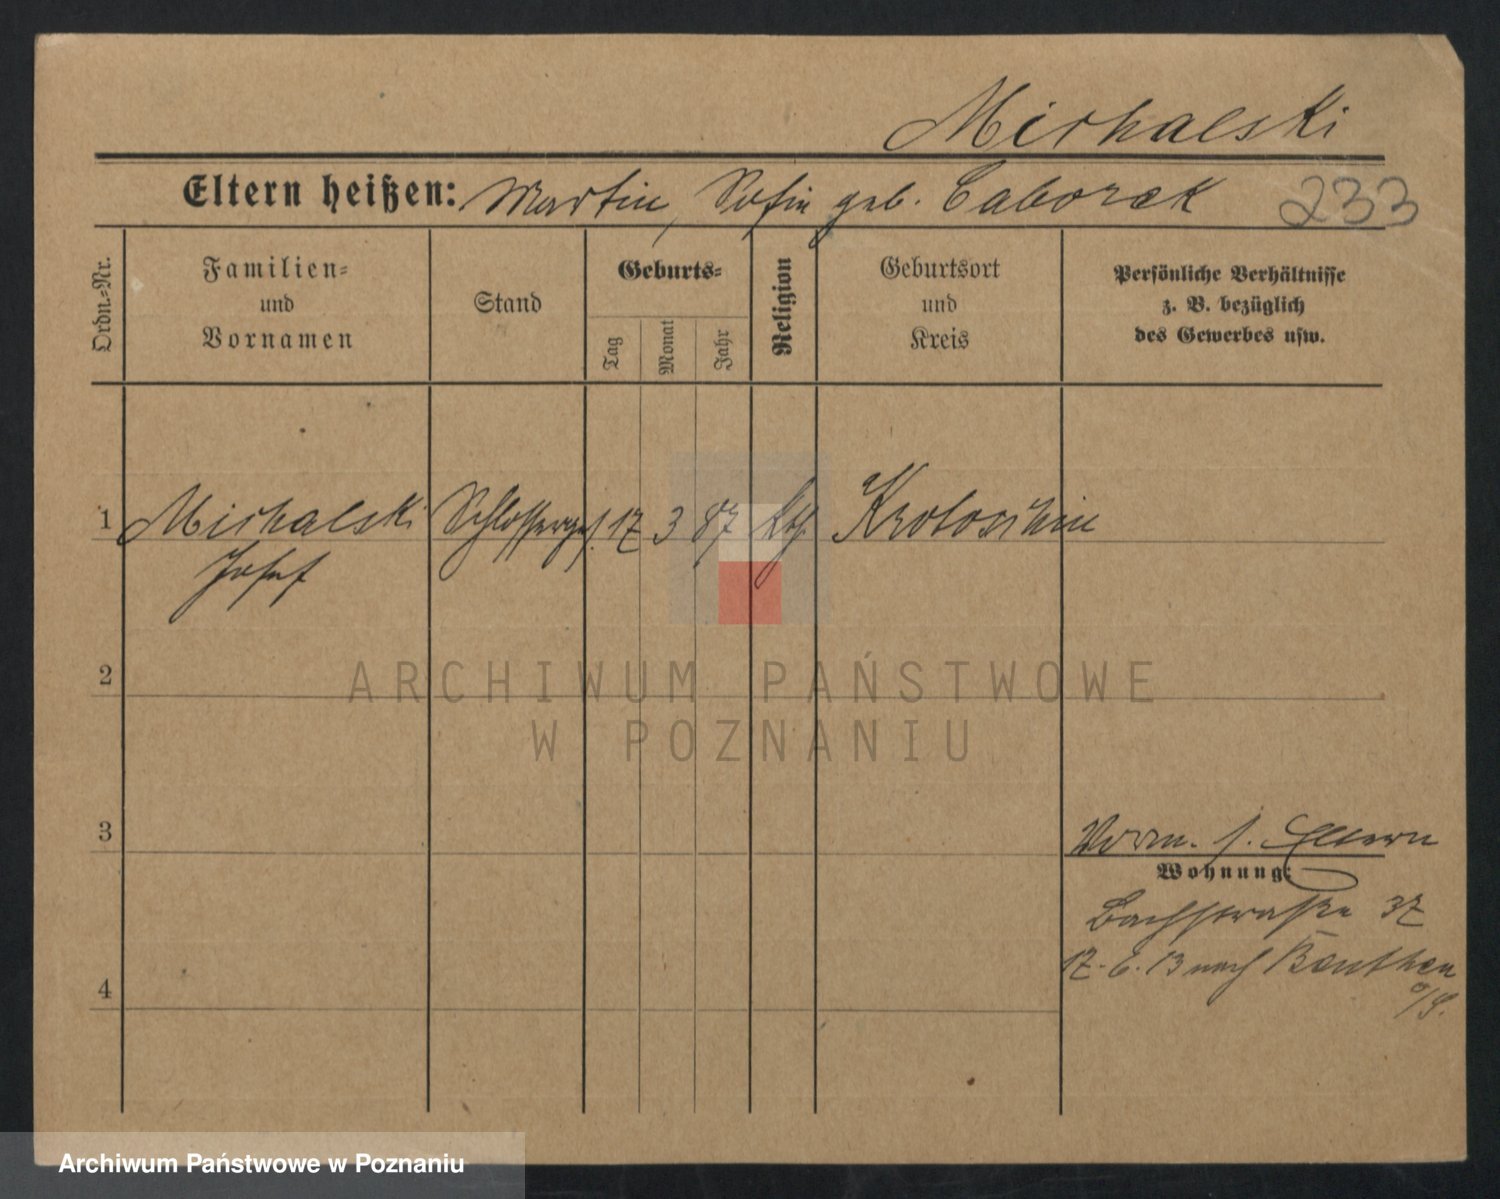 Michalski
Eltern heißen: Martin, Sofie geb. Caborek 233
Ordn.-Nr.
Familien- und Vornamen
Stand
Geburts-
Tag
Monat
Jahr
Religion
Geburtsort und Kreis
Persönliche Verhältnisse
z. B. bezüglich
des Gewerbes usw.
1 Michalski Schlosserges. 17 3 87 kth. Krotoschin
Josef
ARCHIWUM PAŃSTWOWE
W POZNANIU
2
3
Vorm. s. Eltern
Wohnung:
Bachstraße 37
17. 6. 13 nach Beuthen
o/S.
4
Archiwum Państwowe w Poznaniu